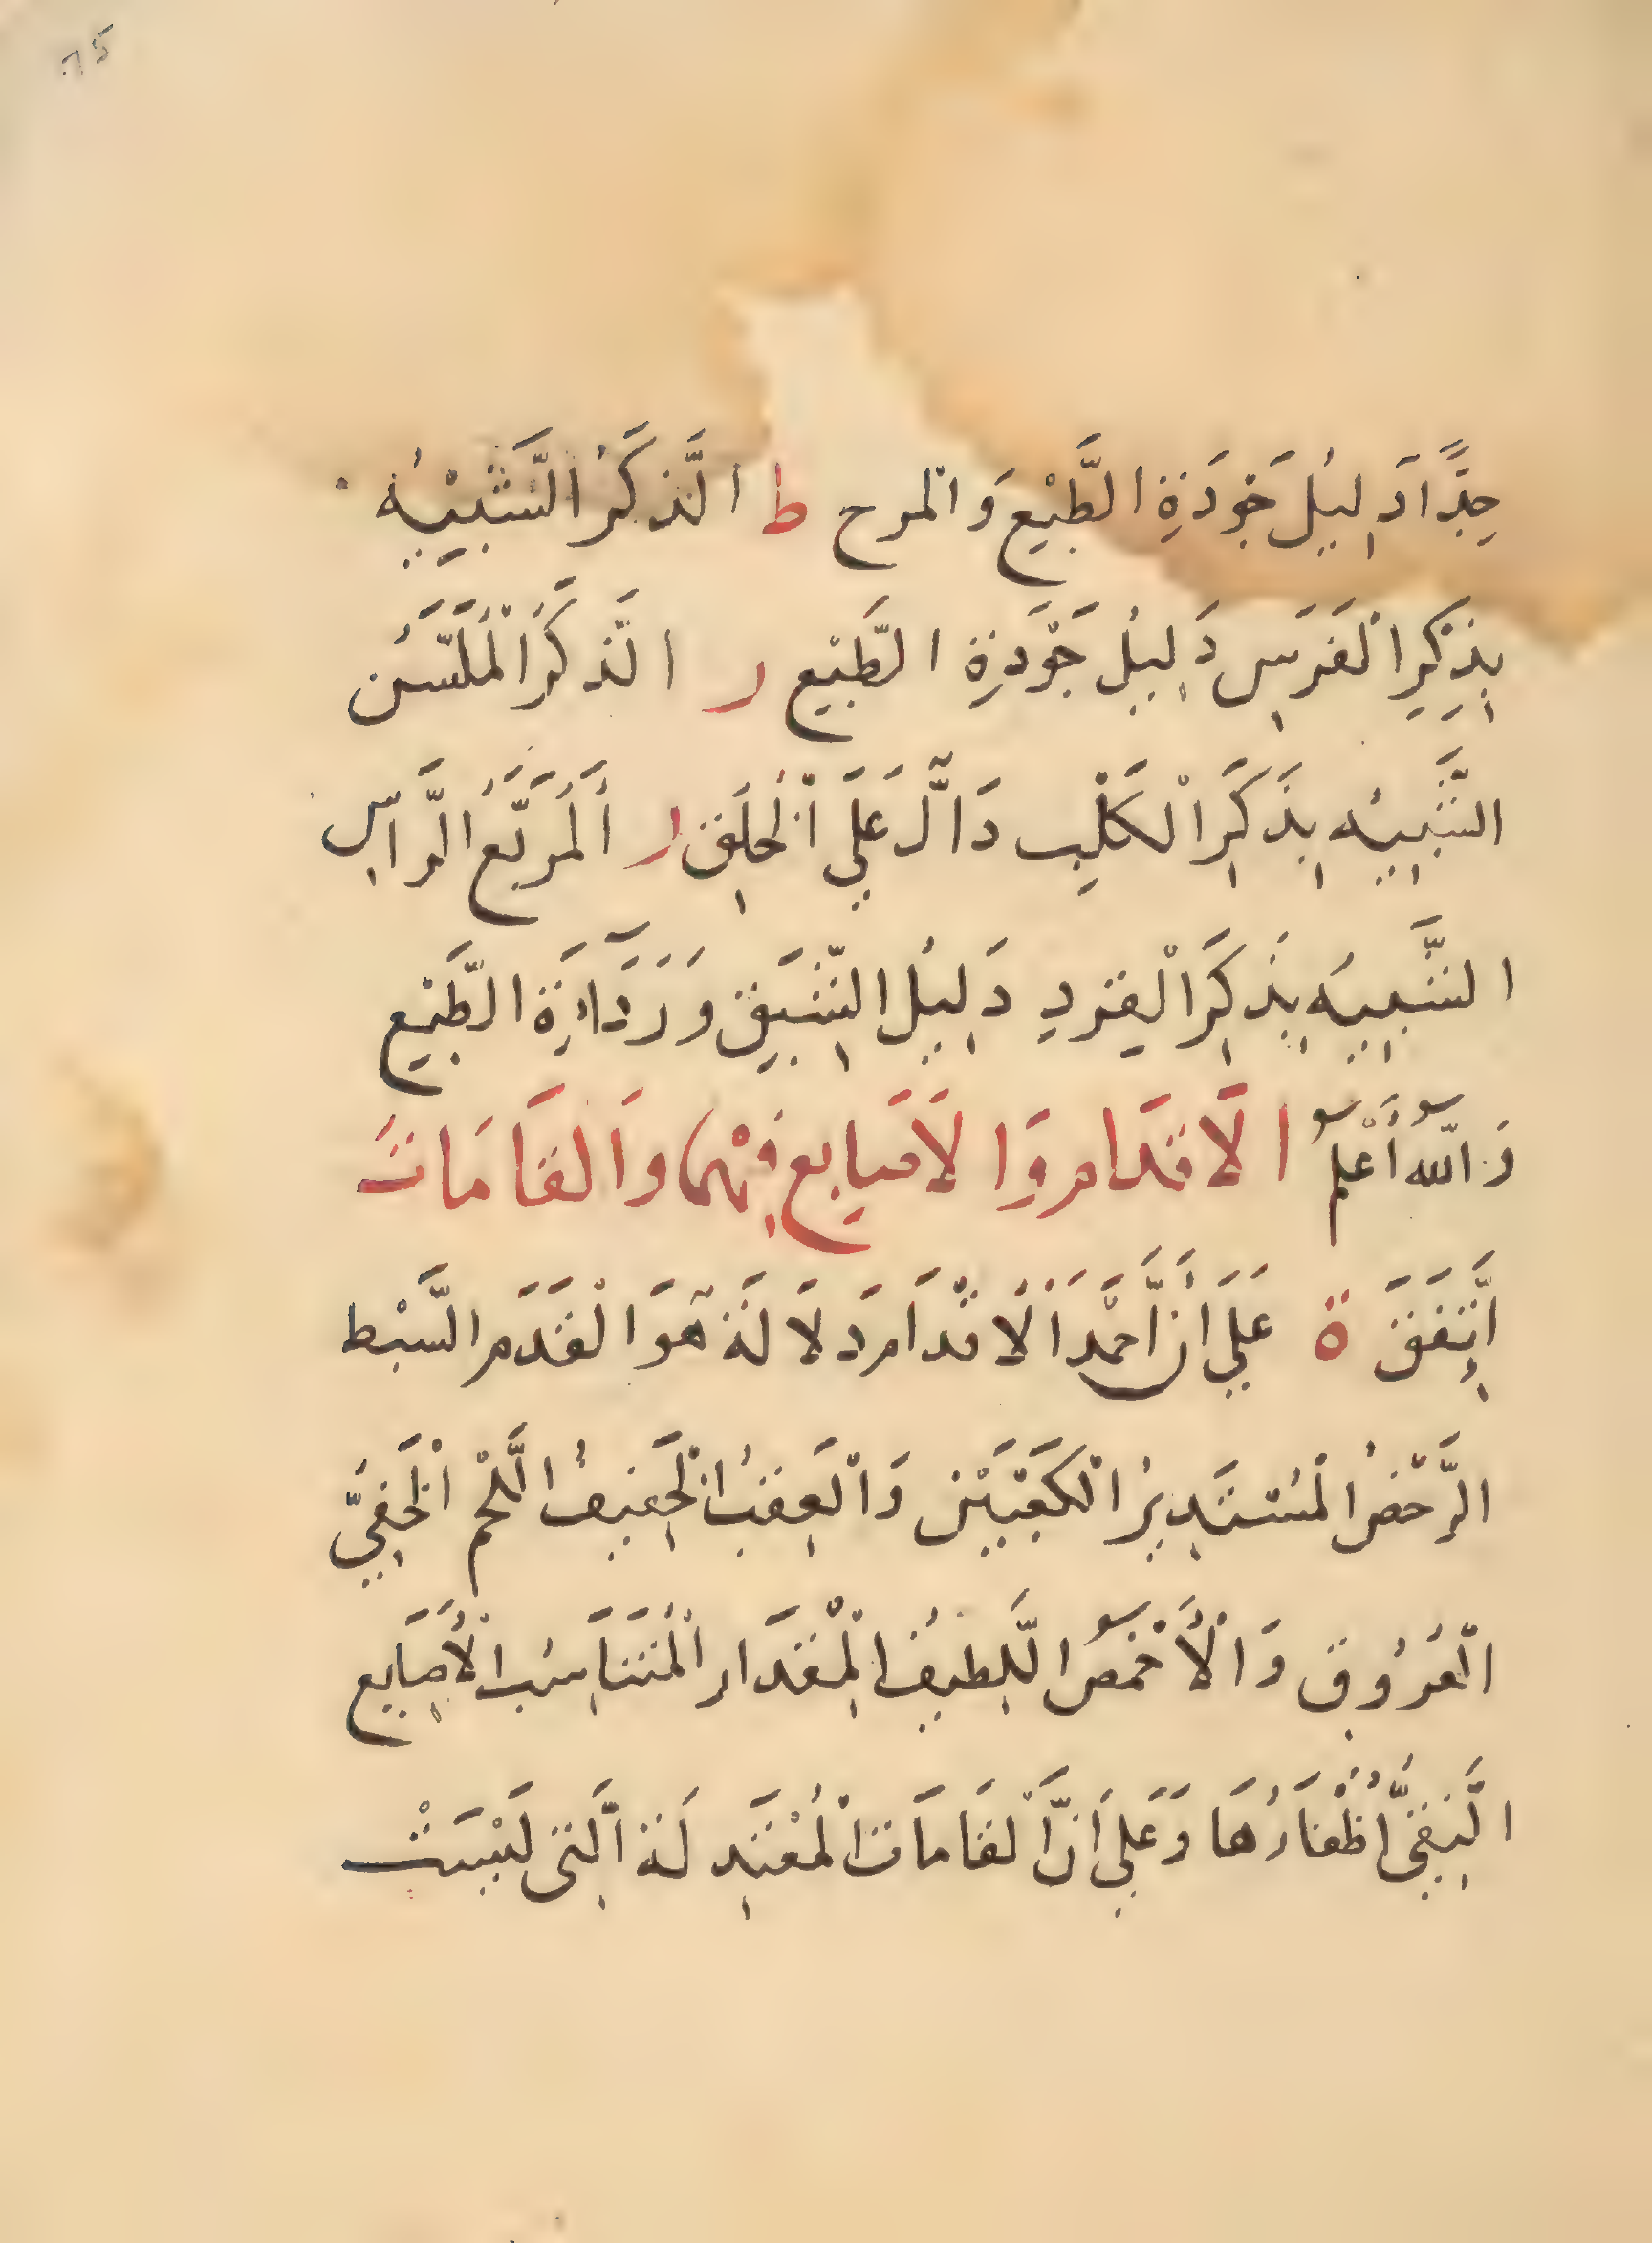 جِدًّا دَلِيلُ جَوْدَةِ الطَّبْعِ وَالمرح ط الذَّكَرُ الشَّبِيْهُ
بِذَكَرِ الْفَرَسِ دَلِيلُ جَوْدَةِ الطَّبْعِ ر الذَّكَرُ الْمُلَسَّنُ
الشَّبِيْهُ بِذَكَرِ الْكَلْبِ دَالٌّ عَلَي الْخُلُقِ ر الْمُرَبَّعُ الرَّاسِ
الشَّبِيهُ بِذَكَرِ الْقِرْدِ دَلِيلُ الشَّبَقِ وَرَدَاءَةِ الطَّبْعِ
وَاللّه أَعْلم الاَقدَام وَالاَصَابِع فِيْهِمَا وَالقَامَاتَ
اِتَّفَقَ ة عَلَي اَنَّ اَحْمَدَ الْاَقْدَام دَلَالَةً هُوَ الْقَدَم السَّبْط
الرَّخْصُ الْمُسْتَدِيرُ الْكَعْبَيْنِ وَالْعَقِبُ الْخَفِيفُ اللَّحْمِ الْخَفِيَّ
الْعُرُوقِ وَالْأَخْمَص اللَّطِيفُ الْمِقْدَار الْمُتَنَاسِبُ الْأَصَابِع
النَّقِيُّ اُظْفَارُهَا وَعَلَي اَنَّ الْقَامَاتَ الْمُعْتَدِلَة الَّتِى لَيْسَتْ